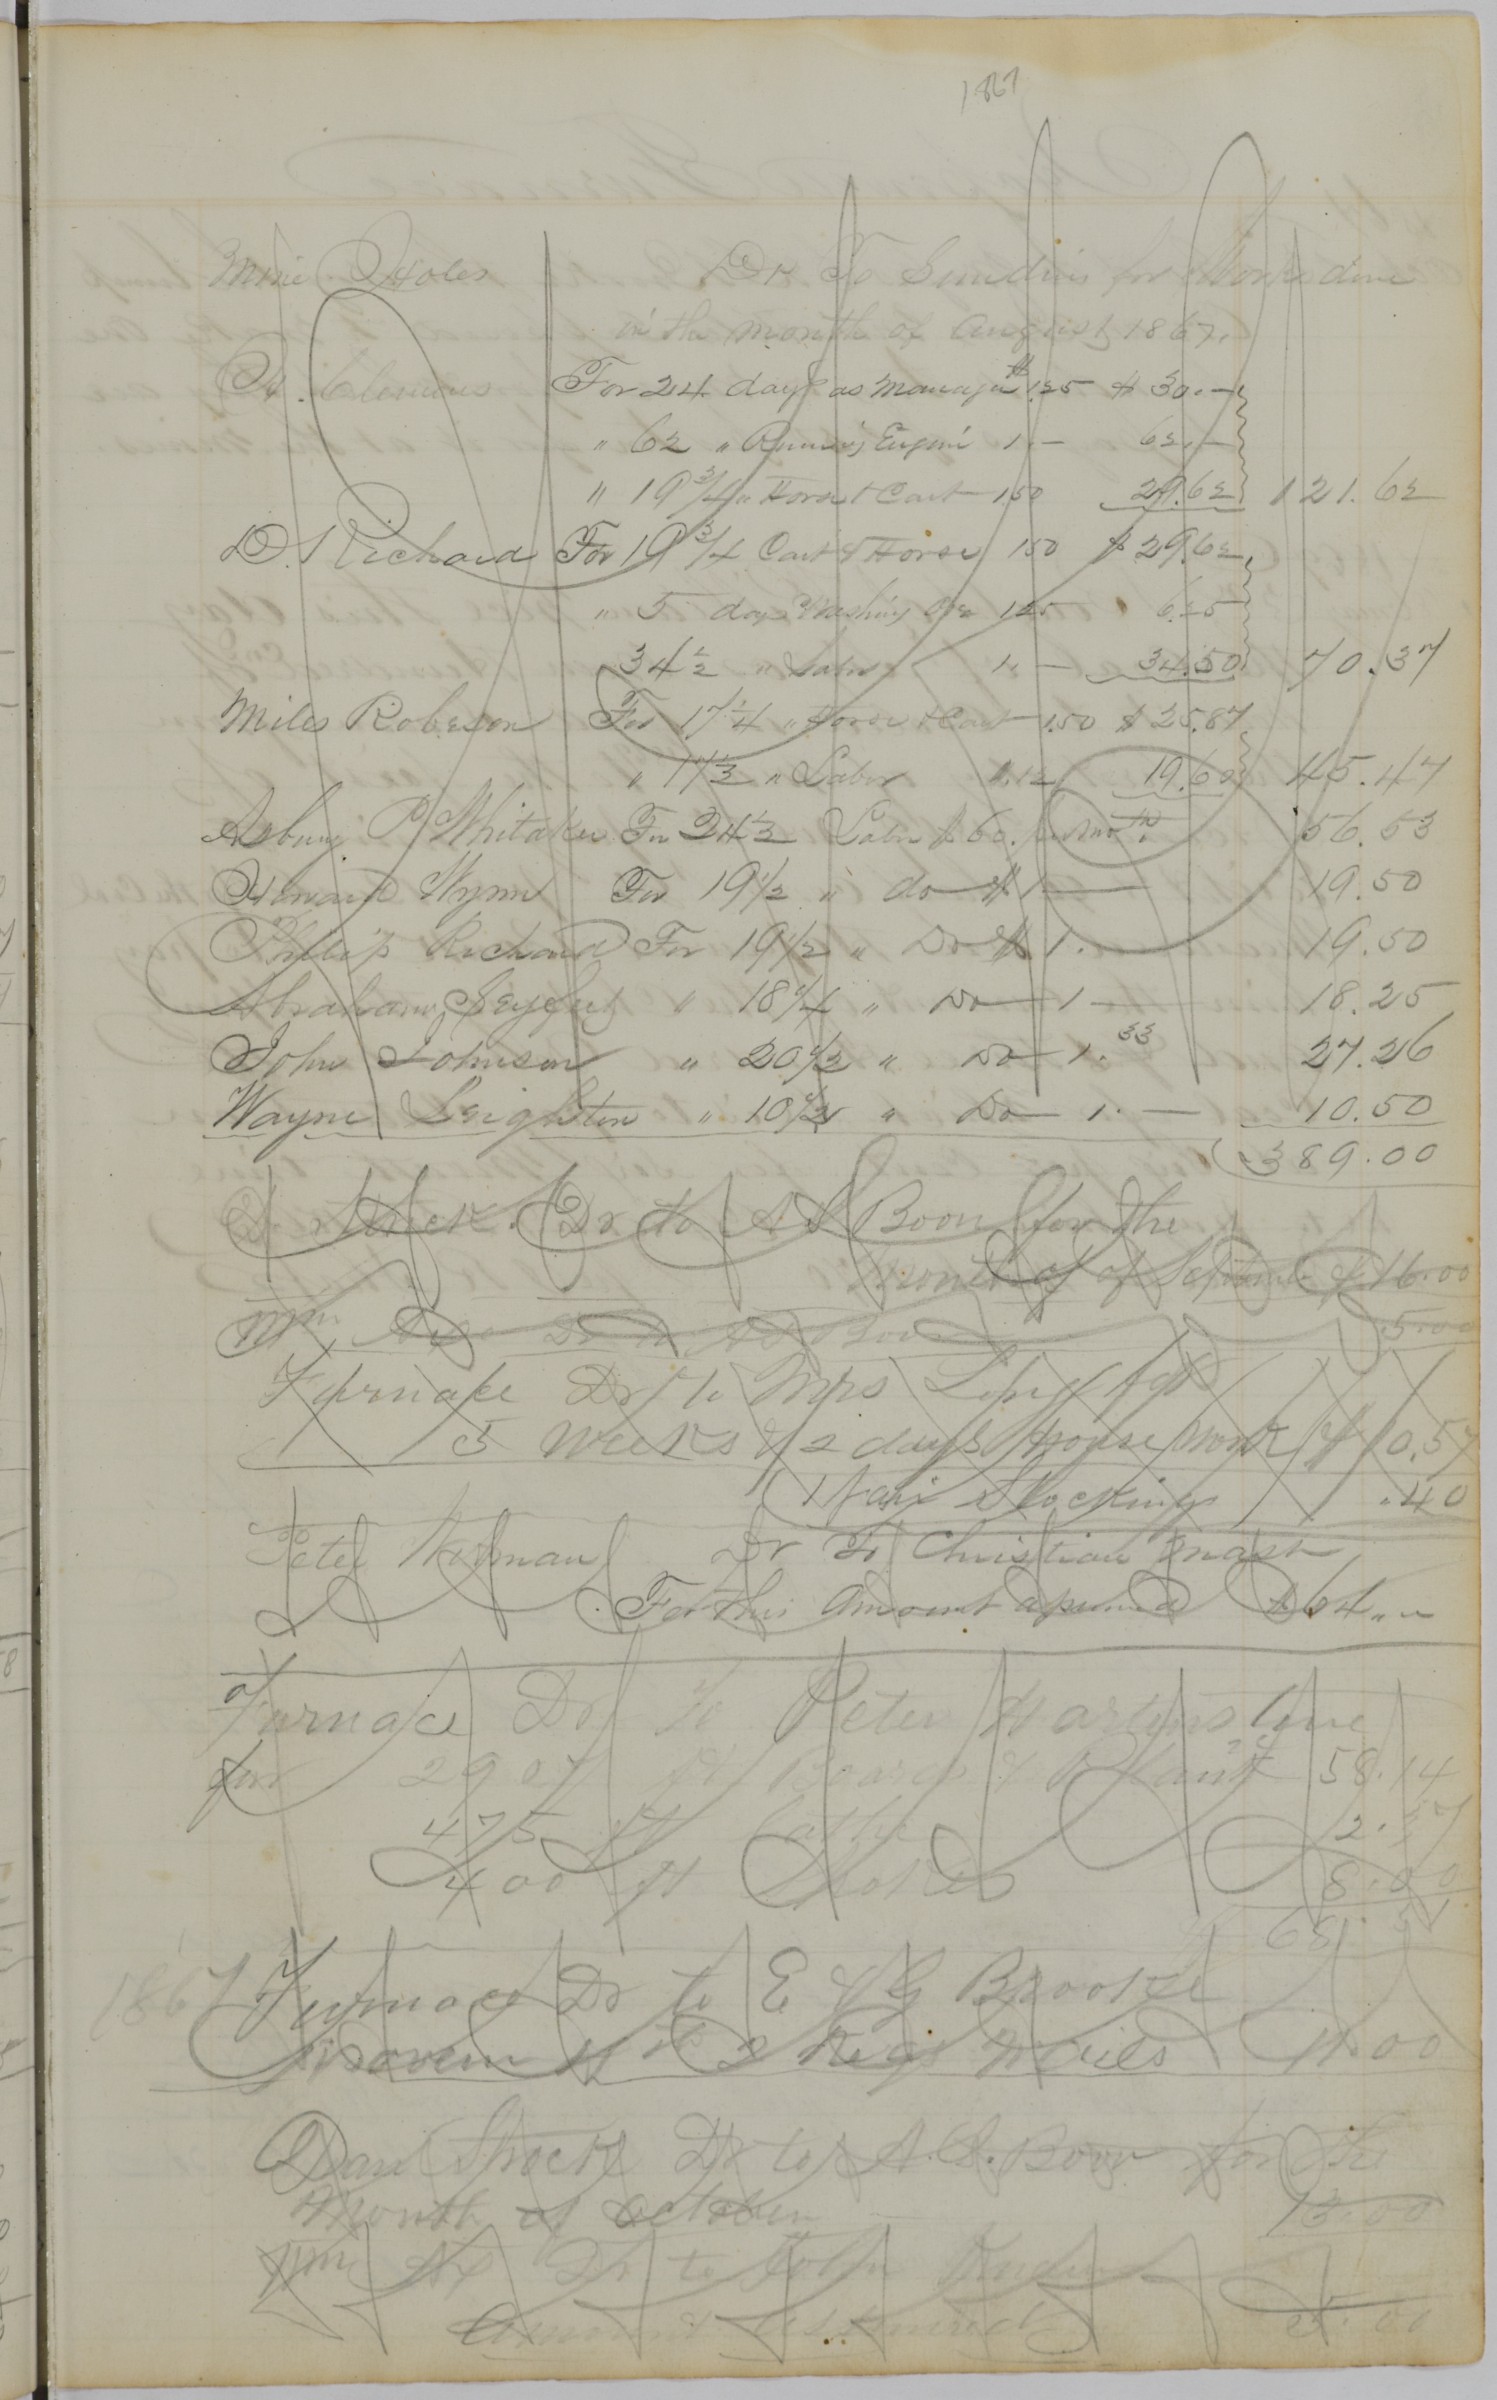 1867
Mine Holes Dr. To Sundries for Work done
in the month of August 1867.
H. Clemens For 24 days as Manager $1.25 $30.—
" 62 " Runing Engine 1.— 62.—
" 19 3/4 " Horse & Cart 1.50 29.62 121.62
D. Richard For 19 3/4 Cart & Horse 150 $29.62
" 5 days Washing Ore 1.25 6.25
34 1/2 " Labor 1.— 34.50 70.37
Miles Roberson For 17 1/4 " Horse & Cart 1.50 $25.87
" 17 1/2 " Labor 1.12 19.60 45.47
Asbury P Whitaker For 24 1/2 Labor $60. per Month. 56.53
Howard Wynn For 19 1/2 " do $1.— 19.50
Philip Richard For 19 1/2 " Do $1.— 19.50
Abraham Seyfert " 18 1/4 " Do 1— 18.25
John Johnson " 20 1/2 " Do 1.33 27.26
Wayne Leighton " 10 1/2 " Do 1.— 10.50
389.00
D. Shick. Dr. to A S Boon for the
Month of of September $16.00
Wm Dr to A S Boon 5.00
Furnace Dr to Mrs
5 Weeks & 2 days House work 10.57
1 Pair Stockings .40
Peter Dr To Christian
For this Amount assumed $64.
Furnace Dr to Peter Hartenstine
for 2907 ft Boards & Plank 58.14
475 ft Laths 2.37
400 ft 8.00
68.51
1867 Furnace Dr to E & G Brooke
2 Kegs Nails 11.00
Dan Dr to A. S. Boon for the
Month of October 13.00
Wm Dr to John
Amount assumed 25.00